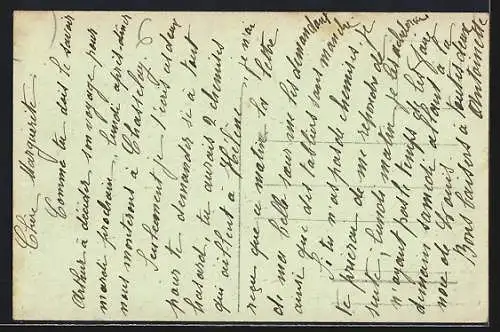 Cher Marguerite
Comme tu dois le savoir
Arthur a décidé son voyage pour
mardi prochain, lundi après-dîner
nous monterons à Chasselay.
Seulement je t'écris ces deux
pour te demander si à tout
hasard, tu aurais 2 chemises
qui aillent à Hélène, je n'ai
reçu que ce matin la lettre
de ma belle sœur me les demandant
ainsi que des tabliers sans manche
Si tu n'as pas de chemises, je
te prierai de me répondre de
suite, lundi matin, je
n'ayant pas le temps de les faire
demain samedi allant à la
de Louis.
Bons baisers à toutes deux
Antoinette